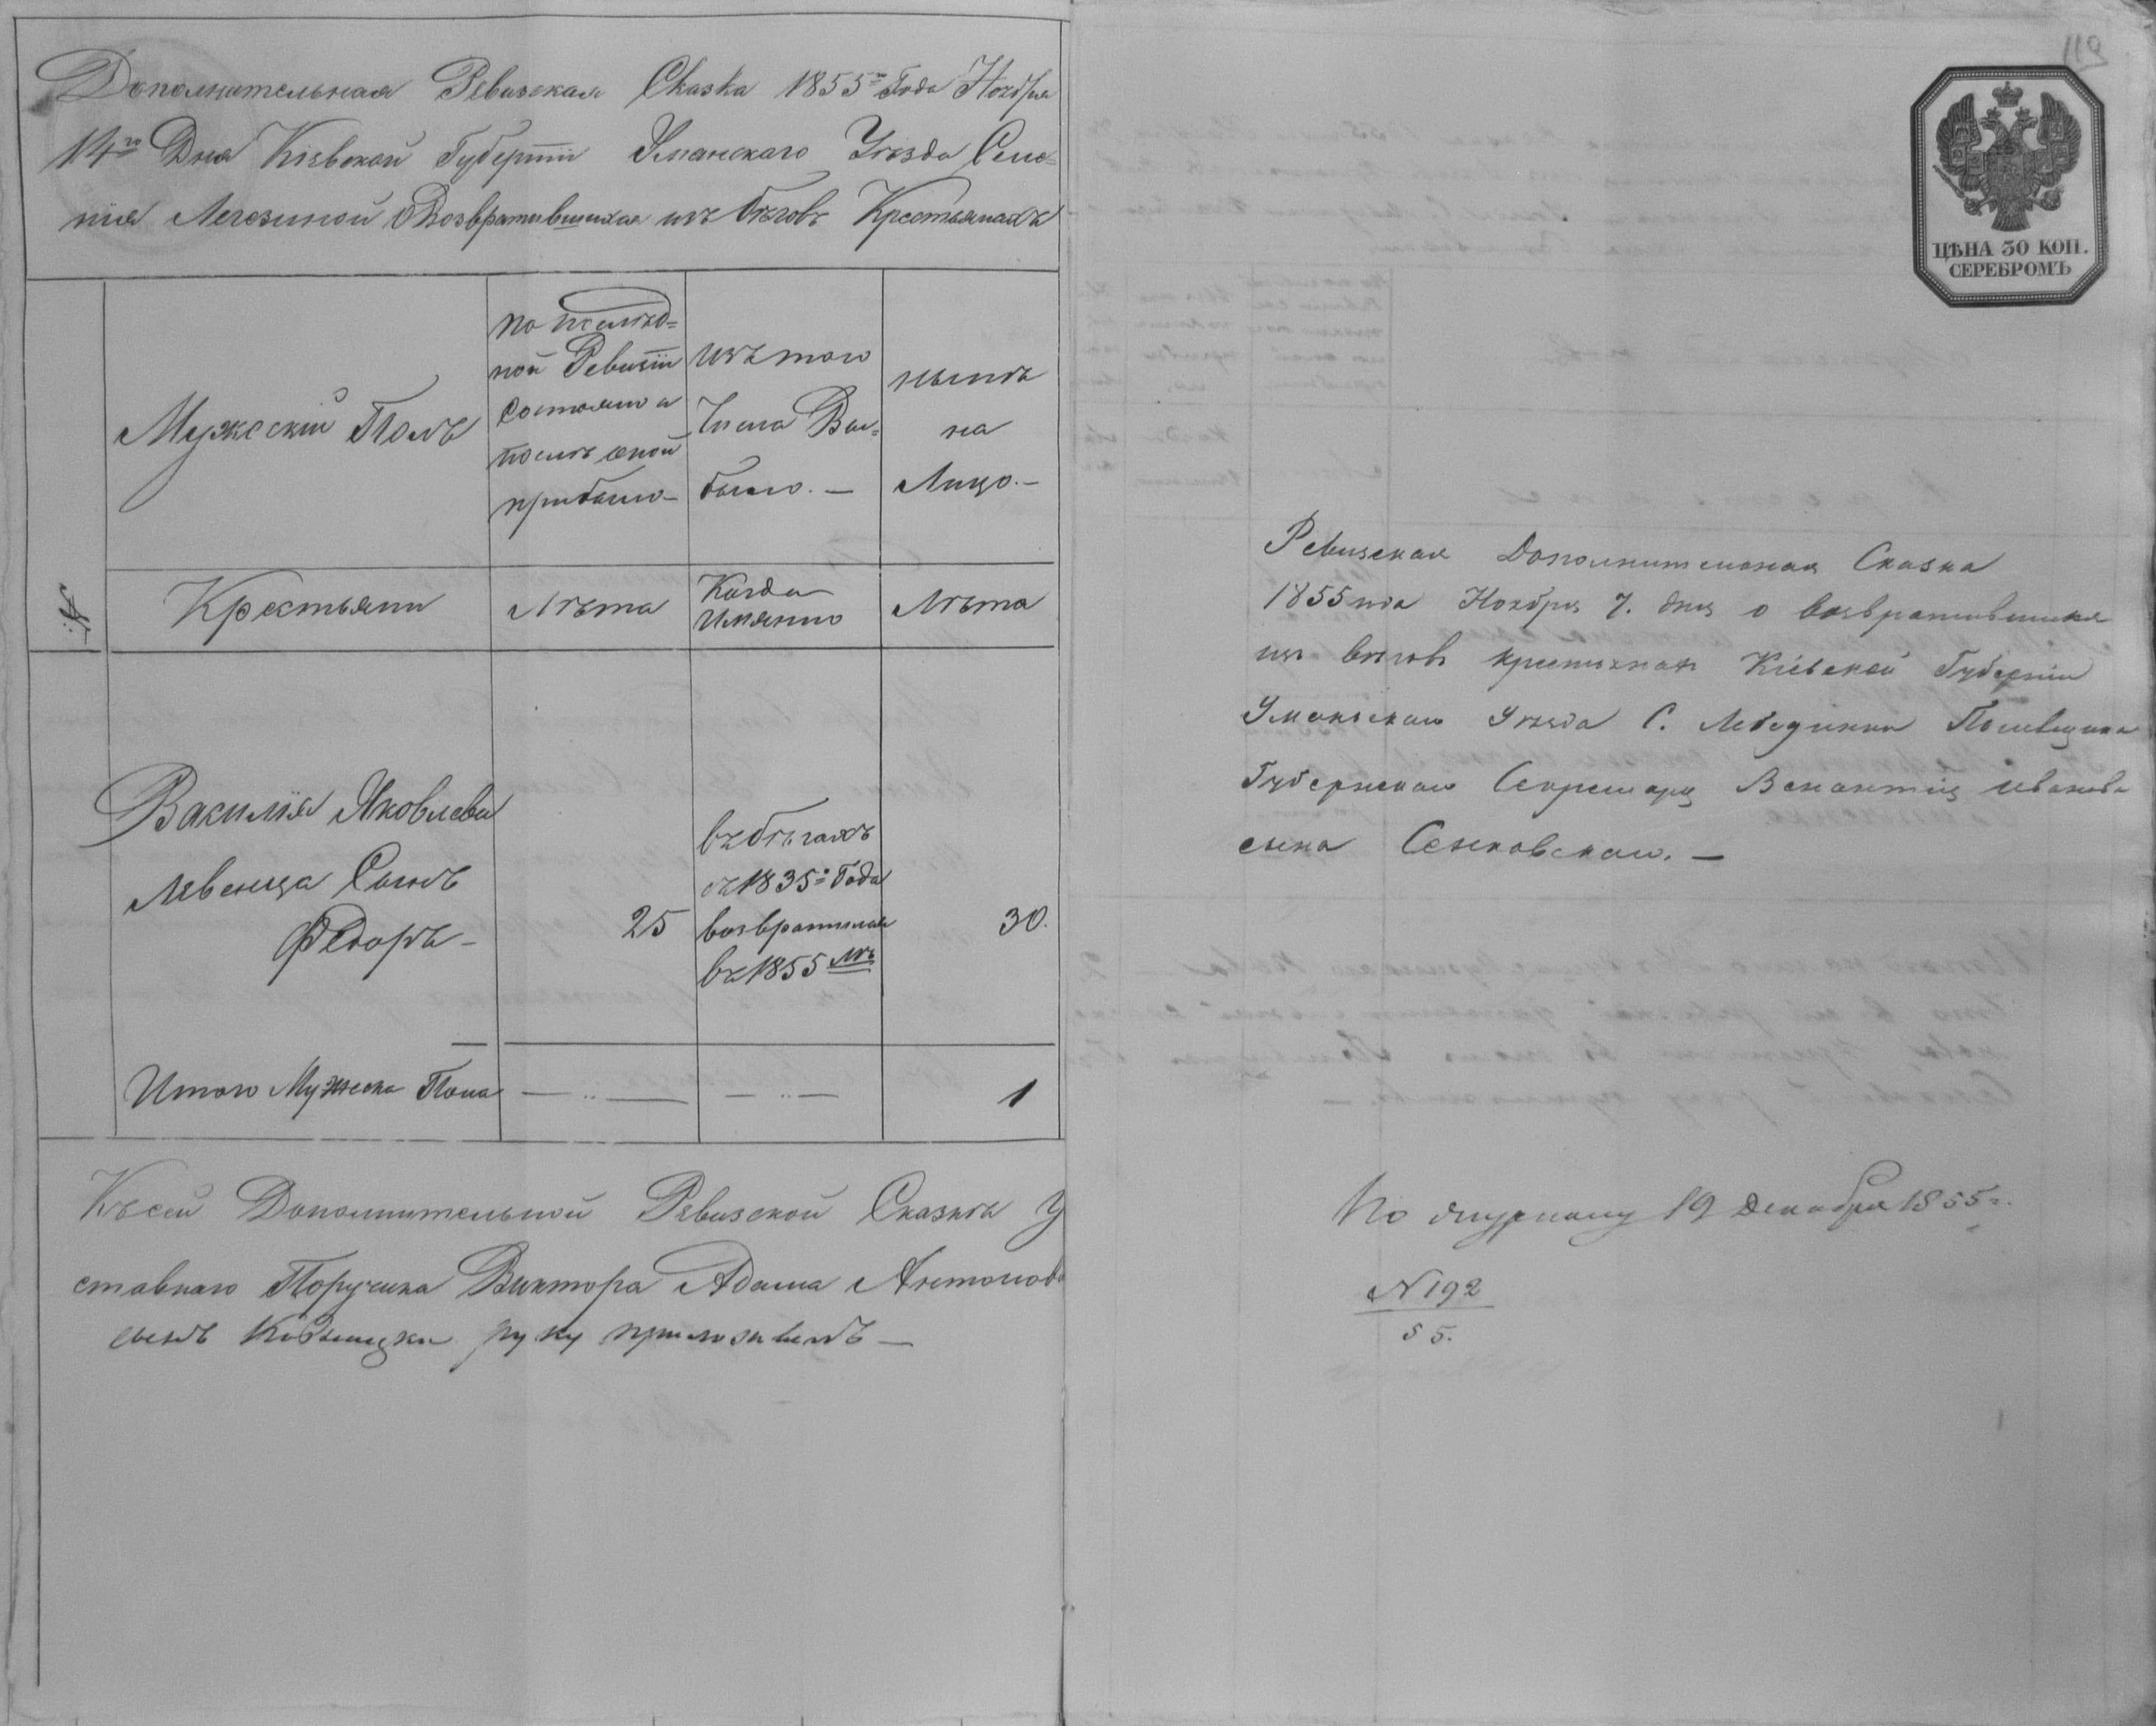 Дополнительная Ревизская Сказка 1855го Года Ноября
14го Дня Кіевской Губерніи Уманскаго Уезда Селе=
нія Легезиной о Возвратившихся изъ бѣговъ Крестьянахъ
№
Мужескій Полъ
по послѣд=
ной Ревизіи
состояло и
послѣ оной
прибыло –
изъ того
Числа Вы=
было. –
нынѣ
на
Лицо. –
Крестьяни
Лѣта
Когда
Имянно
Лѣта
Василія Яковлева
Левенца Сынъ
Федоръ –
25
въ бѣгахъ
съ 1835го Года
возвратился
въ 1855 мъ
30.
Итого Мужеска Пола
1
Къ сей Дополнительной Ревизской Сказкѣ У
ставнаго Поручика Виктора Адама Антонов
сынъ руку приложилъ –
119
ЦѢНА 30 КОП.
СЕРЕБРОМЪ
Ревизская Дополнительная Сказка
1855 года Ноября 7. дня о возвратившихся
изъ бѣговъ крестьянах Кіевской Губерніи
Уманскаго Уезда С. Лебединки Помещика
Губернскаго Секретаря Иванова
сына Сенковскаго. –
По журналу 19 Декабря 1855 г.
N 192
55.